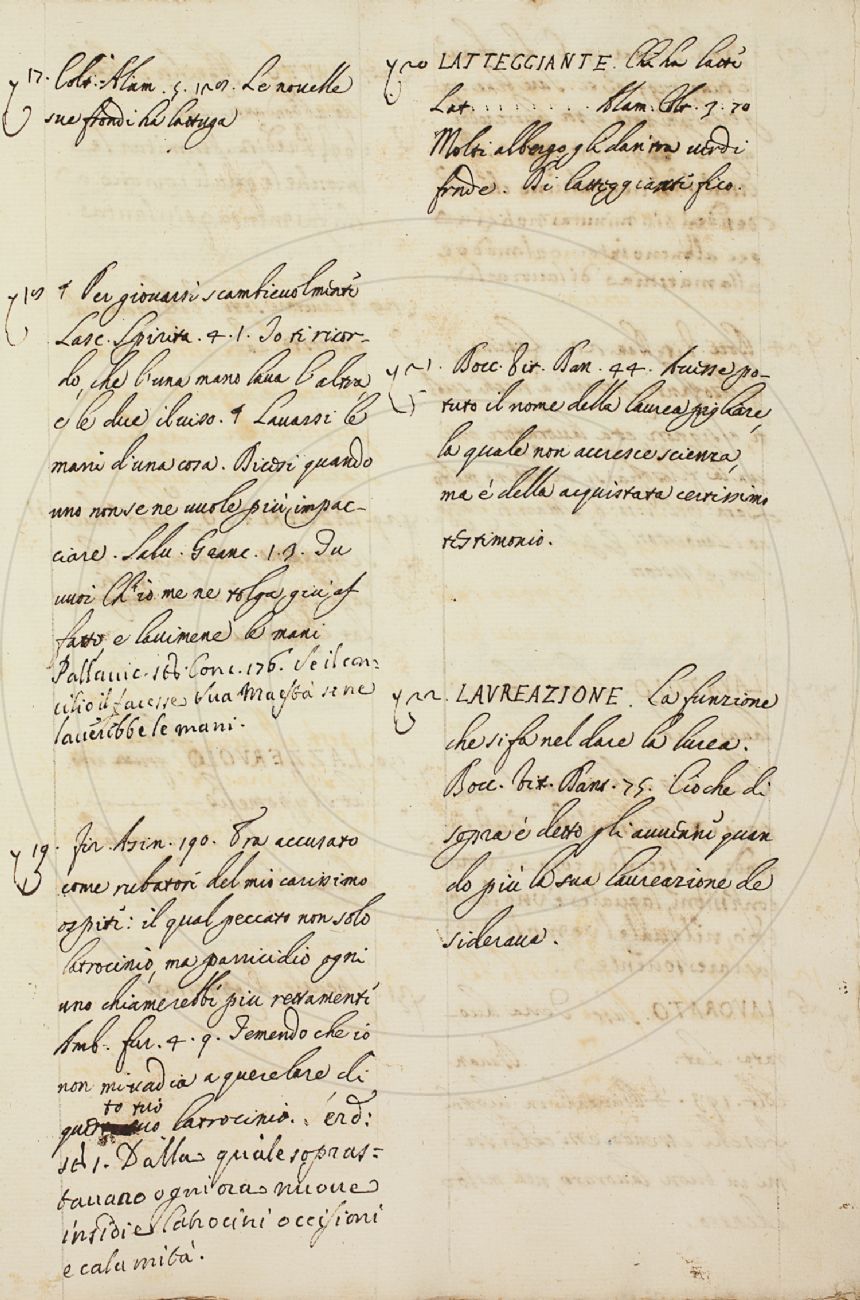 17. Colt. Alam. 5. 128. Le novelle
sue frondi ha lattuga
18 ¶ Per giovarsi scambievolmente
Lasc. Spirita. 4. 1. Io ti ricor-
do, che l'una mano lava l'altra
e le due il viso. ¶ Lavarsi le
mani d'una cosa. Dicesi quando
uno non se ne vuole più impac-
ciare. Salv. Granc. 1. 3. Tu
vuoi ch'io me ne tolga giù af
fatto, e lavimene le mani
Pallavic. ist. Conc. 176. Se il con-
cilio il facesse Sua Maestà se ne
laverebbe le mani.
19. fir. Asin. 190. Era accusato
come rubatore del mio carissimo
ospite: il qual peccato non solo
latrocinio, ma parricidio ogni
uno chiamerebbe più rettamente
Amb. fur. 4. 9. Temendo che io
non mi vadia a querelare di
to tuo
ques latrocinio.
st. 1. Dalla quale sopras-
tavano ogni ora nuove
insidie latrocini occisioni
e calamità.
20 LATTEGGIANTE. Che ha latte
Lat. . . . . . . . . Alam. Colt. 3. 70
Molti albergo gli dan tra verdi
fronde. Di latteggianti fico.
21. Bocc. Vit. Dan. 44. Avesse po-
tuto il nome della laurea pigliare,
la quale non accresce scienza,
ma è della acquistata certissimo
testimonio.
22. LAVREAZIONE. La funzione
che si fa nel dare la laurea.
Bocc. Vit. Dant. 75. Ciò che di
sopra è detto gli avvenne quan
do più la sua laureazione de
siderava.